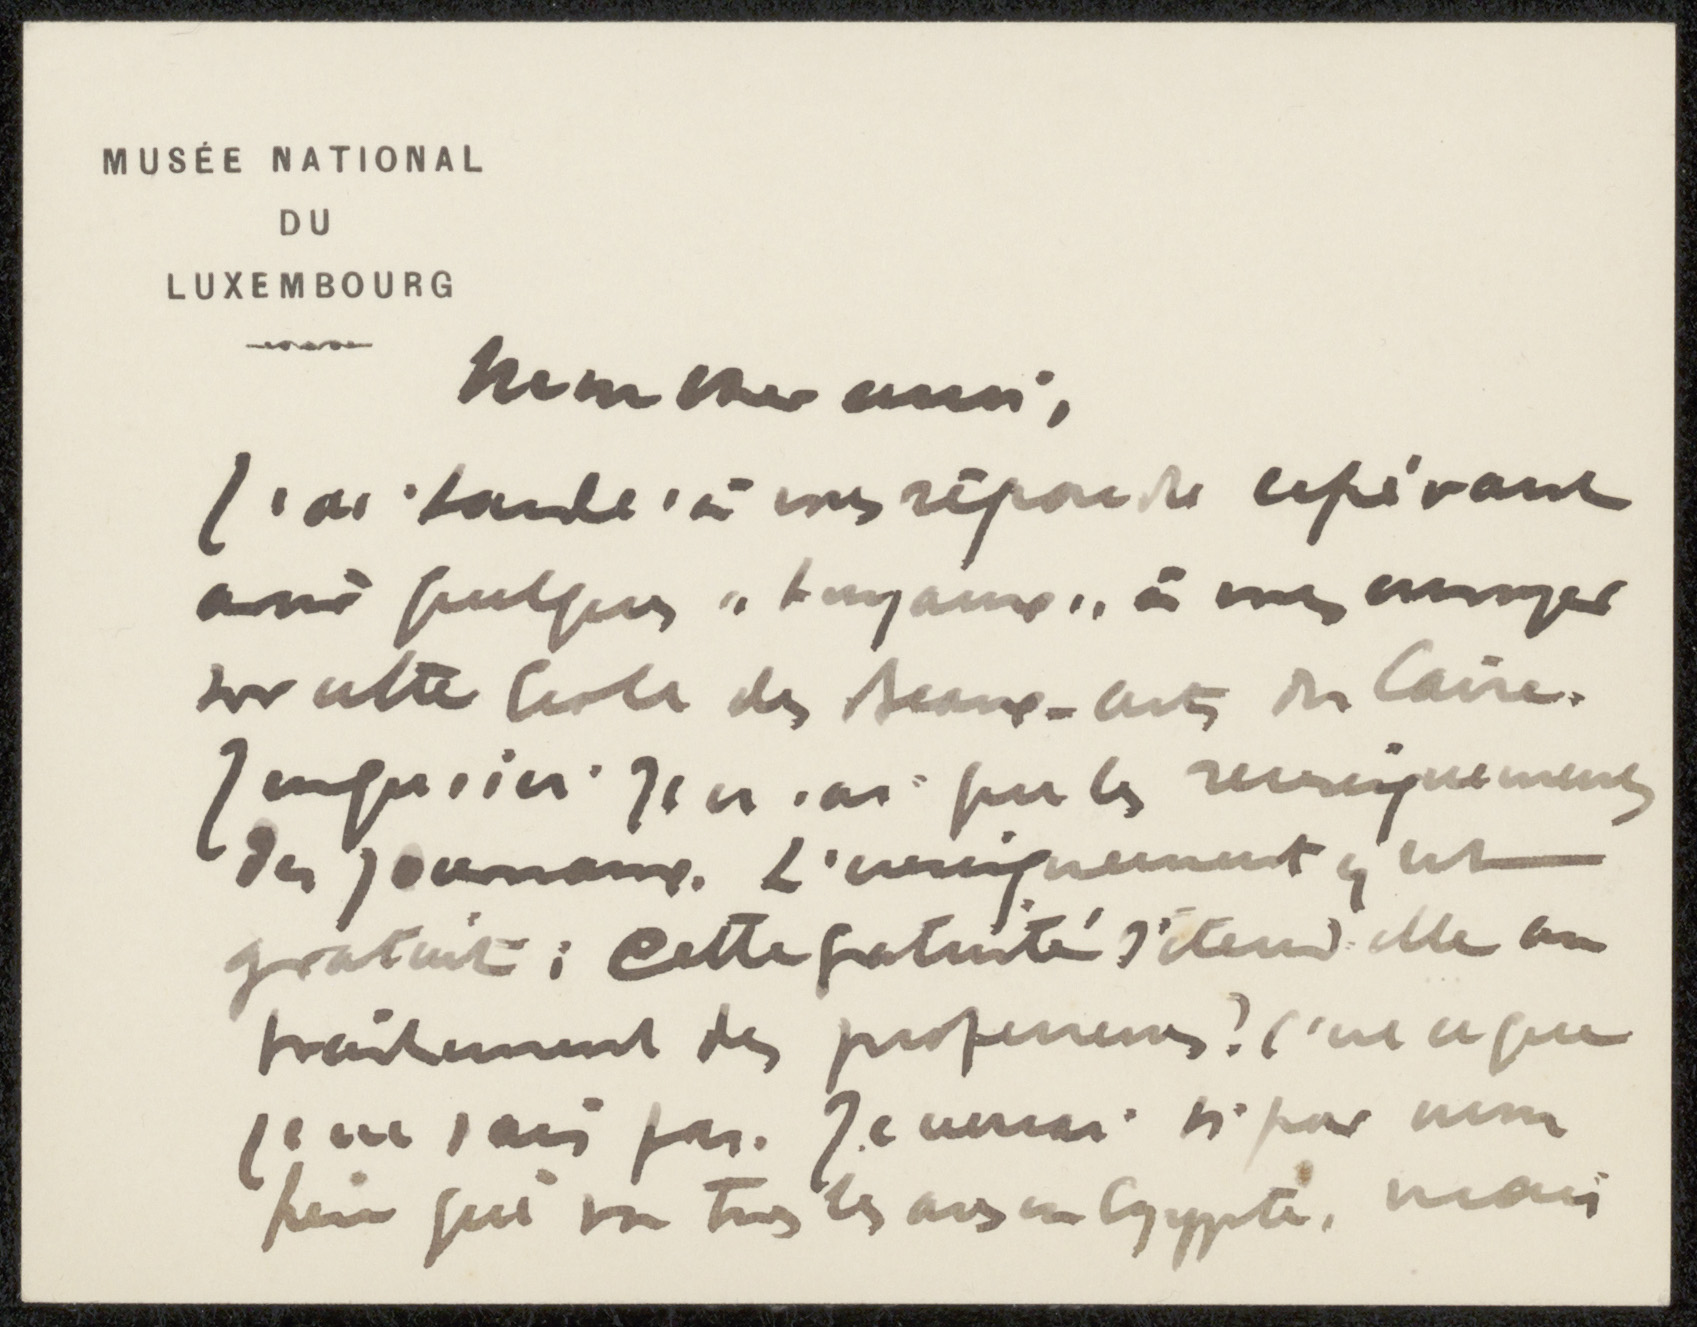 MUSÉE NATIONAL
DU
LUXEMBOURG
Mon cher ami,
J'ai tardé à vous répondre espérant
avoir quelques "tuyaux" à vous envoyer
sur cette Ecole des Beaux-arts du Caire.
Jusqu'ici je n'ai que les renseignements
des journaux. L'enseignement y est
gratuit ; cette gratuité s'étend-elle au
traitement des professeurs? C'est ce que
je ne sais pas. Je verrai si par mon
frère qui va tous les ans en Egypte, mais